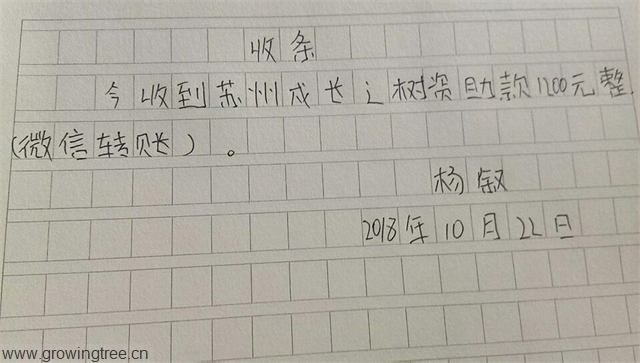 收条
今收到苏州成长之树资助款1200元整
(微信转账)。
杨叙
2018年10月22日
www.growingtree.cn